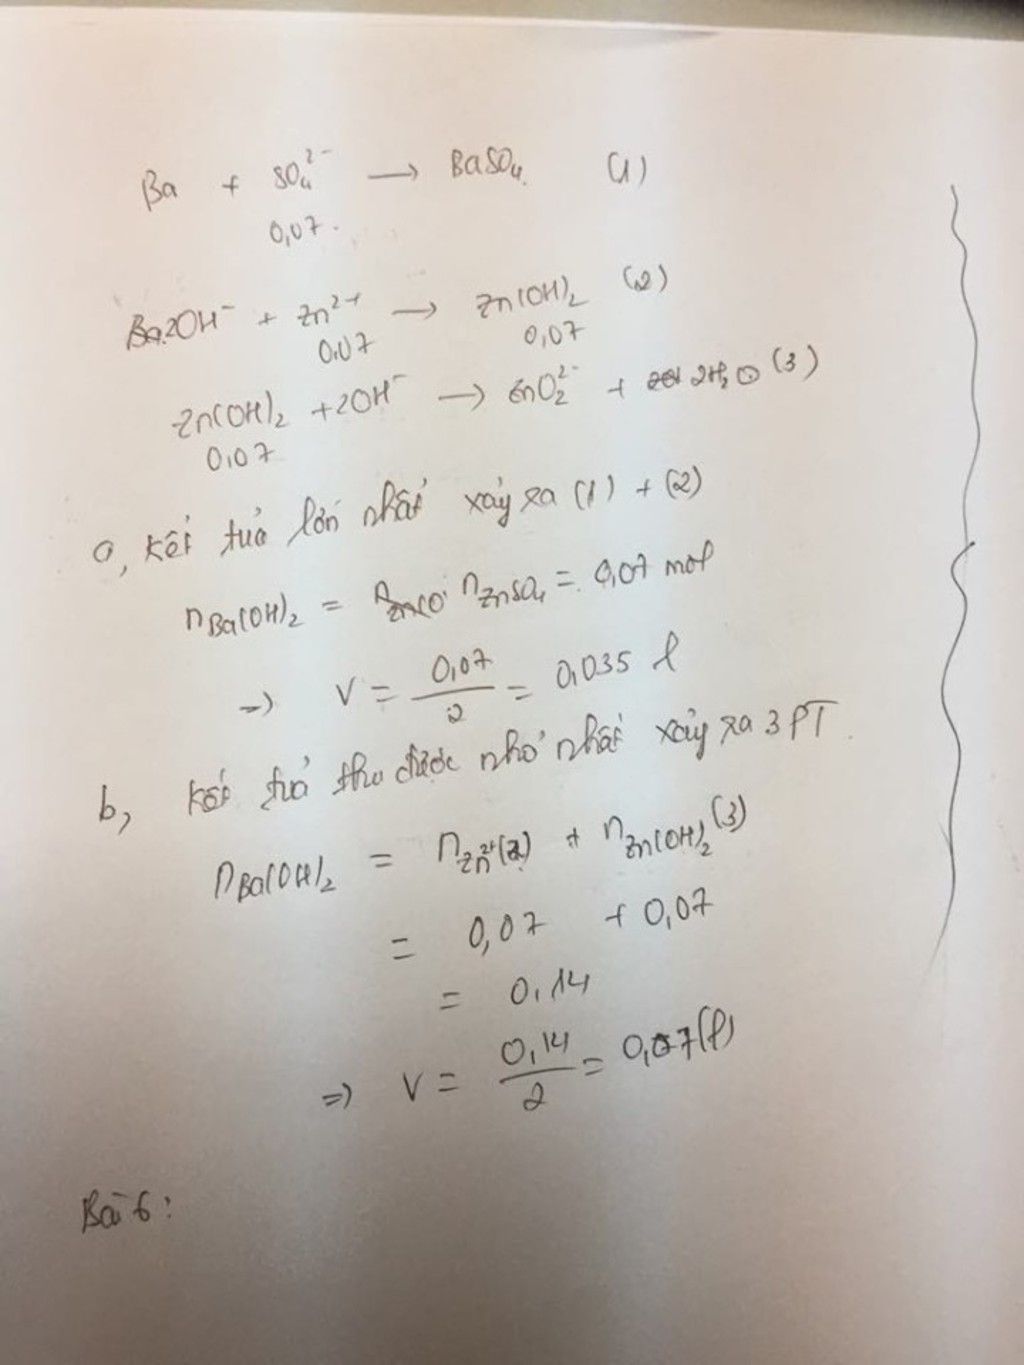 Ba + SO₄²⁻ → BaSO₄ (1)
0,07.
2OH⁻ + Zn²⁺ → Zn(OH)₂ (2)
0,07 0,07
Zn(OH)₂ + 2OH⁻ → ZnO₂²⁻ + 2H₂O (3)
0,07
a, Kết tủa lớn nhất xảy ra (1) + (2)
n Ba(OH)₂ = n ZnSO₄ = 0,07 mol
=> V = 0,07/2 = 0,035 l
b, Kết tủa thu được nhỏ nhất xảy ra 3 PT.
n Ba(OH)₂ = n Zn²⁺(2) + n Zn(OH)₂ (3)
= 0,07 + 0,07
= 0,14
=> V = 0,14/2 = 0,07 (l)
Bài 6: